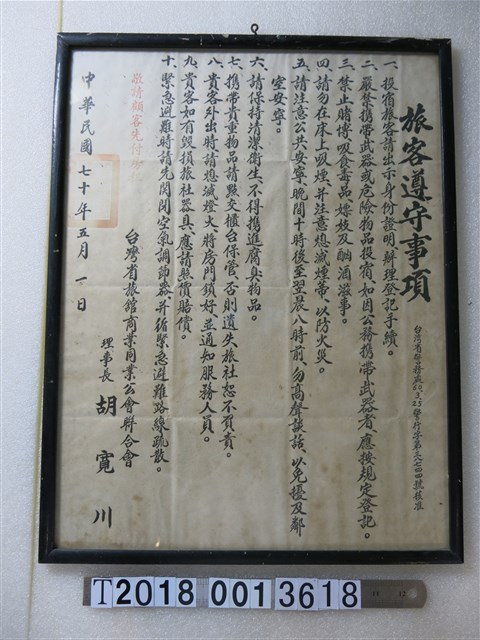 旅客遵守事項
一、投宿旅客請出示身份證明辦理登記手續。
二、嚴禁携帶武器或危險物品投宿,如因公務携帶武器者、應按規定登記。
三、禁止賭博、吸食毒品、嫖妓及酗酒滋事。
四、請勿在床上吸煙、并注意熄滅煙蒂、以防火災。
五、請注意公共安寧、晚間十時後至翌晨八時前、勿高聲談話、以免擾及鄰
室安寧。
六、請保持清潔衛生、不得携進腐臭物品。
七、携帶貴重物品請點交櫃台保管、否則遺失旅社恕不負責。
八、貴客外出時請熄滅燈火、將房門鎖好、並通知服務人員。
九、貴客如有毀損旅社器具、應請照價賠償。
十、緊急避難時請先關閉空氣調節器、并循緊急避難路線疏散。
敬請顧客先付
台灣省旅館商業同業公會聯合會
理事長 胡寬川
中華民國七十年五月一日
T2018 001 3618
11 12